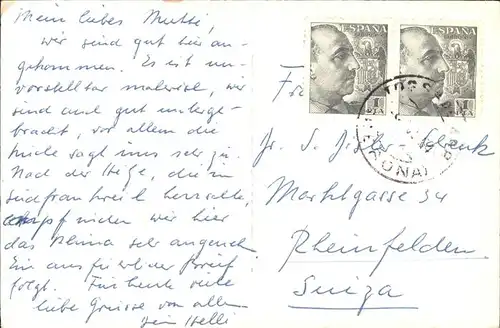 Mein liebes Mutti,
wir sind gut hier an-
gekommen. Es ist un-
vorstellbar malerisch, wir
sind auch gut unterge-
bracht, vor allem die
Küche sagt uns sehr zu.
Nach der Hitze, die in
Südfrankreich herrschte,
empfinden wir hier
das Klima sehr angenehm
Ein ausführlicher Brief
folgt. Für heute viele
liebe Grüsse von allen
Dein Helli
ESPAÑA
1 PTA
ESPAÑA
1 PTA
Fr
Marktgasse 34
Rheinfelden
Suiza